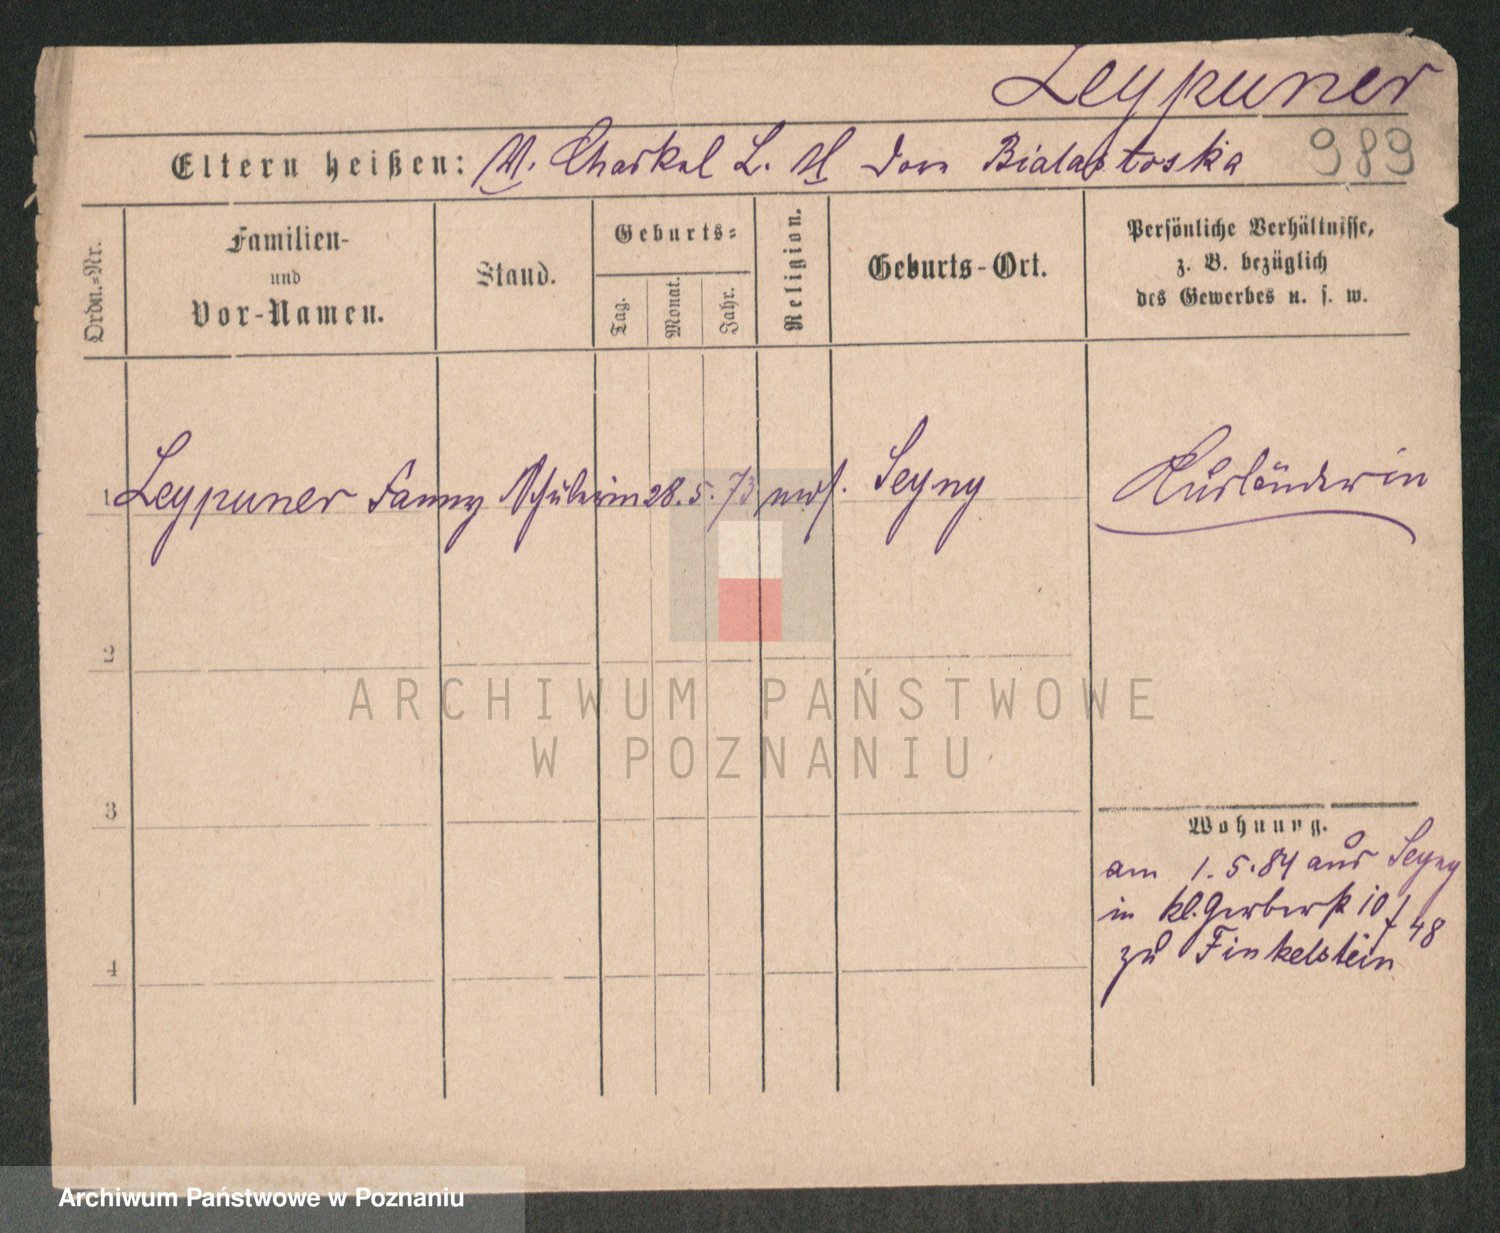 Leypuner
Eltern heißen: V. Chaskel L. M Dora Bialastoska 989
Ordn.-Nr.
Familien-
und
Vor-Namen.
Stand.
Geburts-
Tag.
Monat.
Jahr.
Religion.
Geburts-Ort.
Persönliche Verhältnisse,
z. B. bezüglich
des Gewerbes u. s. w.
1 Leypuner Fanny Schülerin 28. 5. 73 mos. Seyny Ausländerin
2
3
4
Wohnung.
am 1. 5. 84 aus Seyny
in kl. Gerberst 10/
48
zu Finkelstein
ARCHIWUM PAŃSTWOWE
W POZNANIU
Archiwum Państwowe w Poznaniu